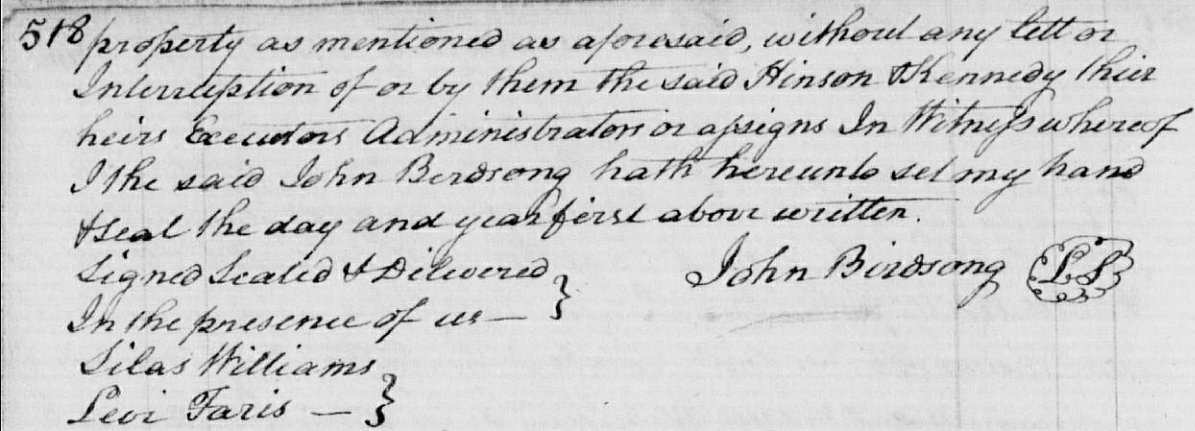 518 property as mentioned as aforesaid, without any lett or
Interruption of or by them the said Hinson & Kennedy thier
heirs Executors Administrators or assigns In Witness whereof
I the said John Birdsong hath hereunto set my hand
& seal the day and year first above written.
Signed Sealed & Delivered }
John Birdsong LS
In the presence of us —
Silas Williams }
Levi Faris —